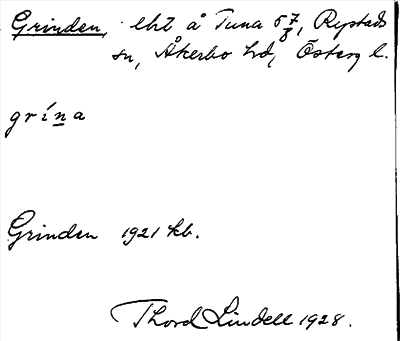 Grinden, lht å Tuna 5 7/8, Rystads
sn, Åkerbo hd, Österg l.
grína
Grinden 1921 kb.
Thord Lindell 1928.